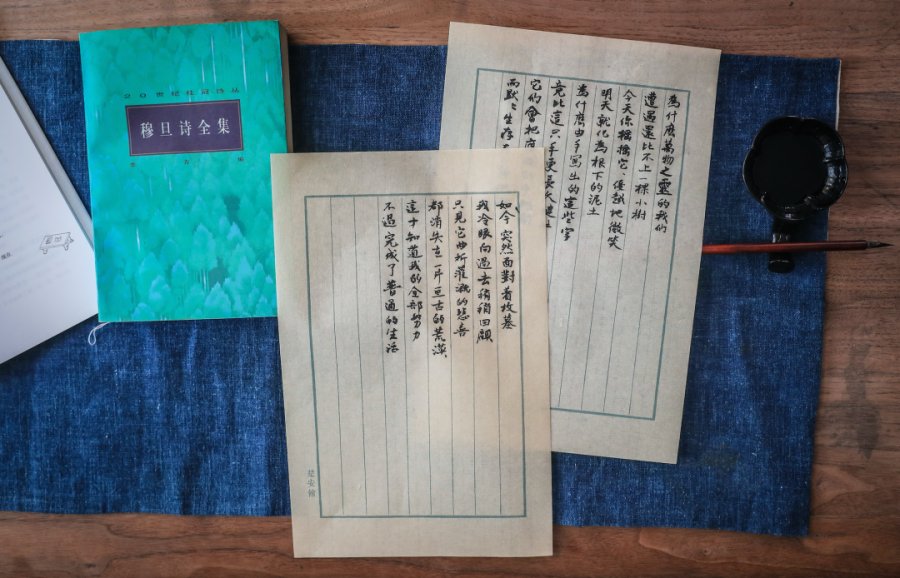 20世纪桂冠诗丛
穆旦诗全集
李方 编
為什麼萬物之靈的我們
遭遇還比不上一棵小樹
今天你搖搖它，優越地微笑
明天就化為根下的泥土
為什麼由手寫出的這些字
竟比這只手更長久健壯
它們會把
而默々生存
如今突然面對着坟墓
我冷眼向過去稍稍回顧
只見它曲折灌溉的悲喜
都消失在一片亘古的荒漠
這才知道我的全部努力
不過完成了普通的生活